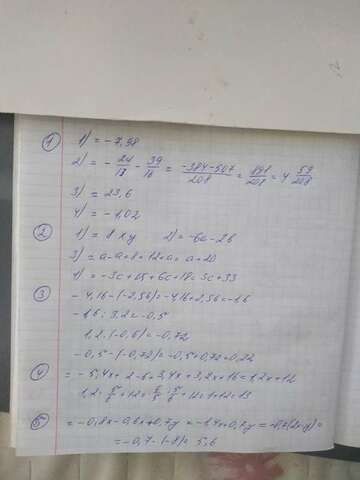 ① 1) = -7,98
2) = - 24/13 - 39/16 = -384-507/208 = 891/208 = 4 59/208
3) = 23,6
4) = -1,02
② 1) = 8xy 2) = -6a-26
3) = a-a+8+12+a = a+20
4) = -3c+15+6c+18 = 3c+33
③ -4,16-(-2,56) = -4,16+2,56 = -1,6
-1,6 : 3,2 = -0,5
1,2 · (-0,6) = -0,72
-0,5-(-0,72) = -0,5+0,72 = 0,22
④ = -5,4x+2-6+3,4x+3,2x+16 = 1,2x+12
1,2 · 5/6 + 12 = 6/5 · 5/6 + 12 = 1+12 = 13
⑤ = -0,8x-0,6x+0,7y = -1,4x+0,7y = -0,7(2x-y) =
= -0,7 · (-8) = 5,6